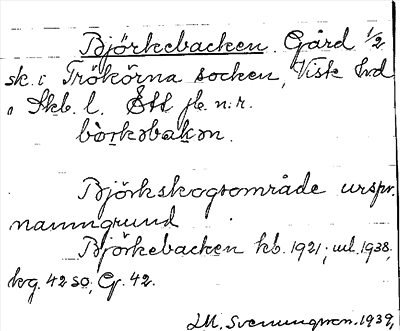 Björkebacken. Gård 1/2
sk. i Trökörna socken, Viste hd
i Skb. l. Ett fb. n:r.
bòrkəbakən.
Björkskogsområde urspr.
namngrund
Björkebacken kb. 1921; ul. 1938,
krg. 42 so; Cg. 42.
I.M. Svenningsson. 1939,